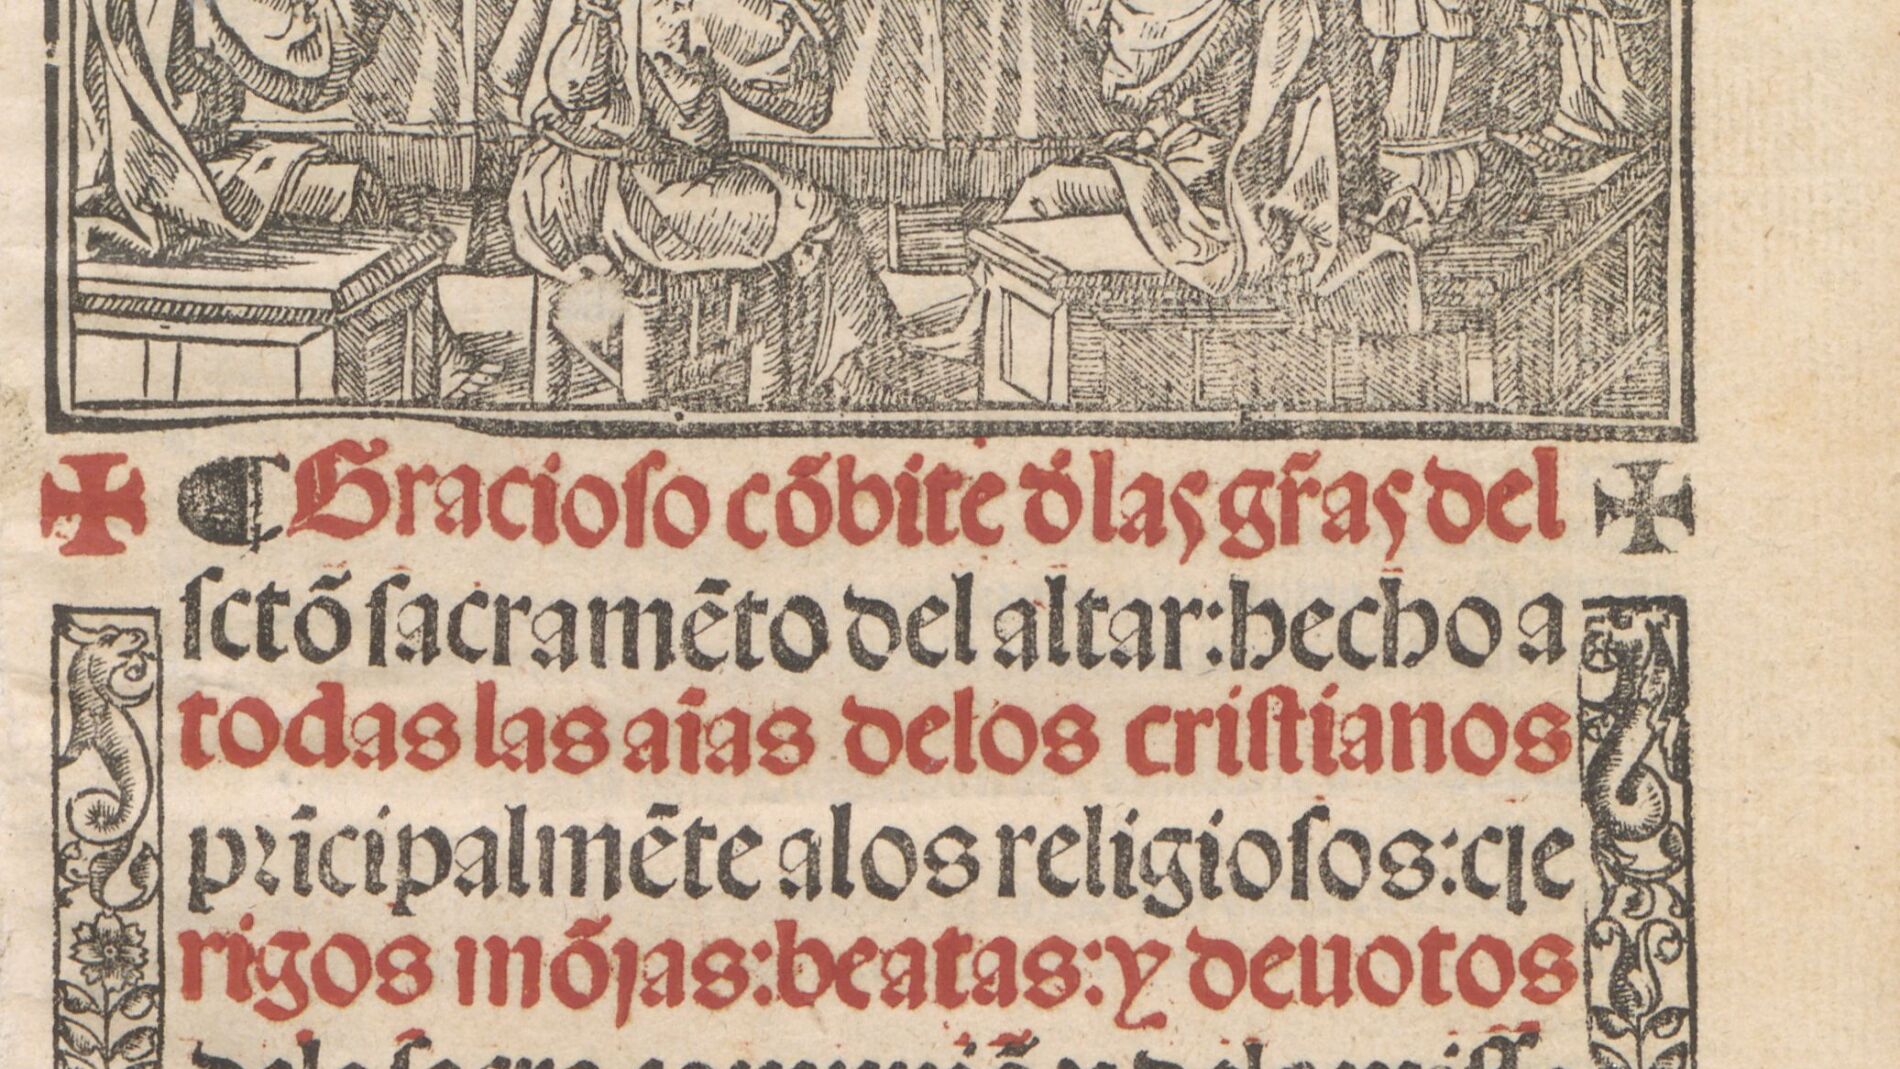 ✠ ¶ Gracioso cõbite đlas gr̃as del ✠
ſctõ ſacramẽto del altar: hecho a
todas las aĩas delos criſtianos
prĩcipalmẽte alos religioſos: cle
rigos mõjas: beatas: y deuotos
dela ſacra comuniõ y dela miſſa